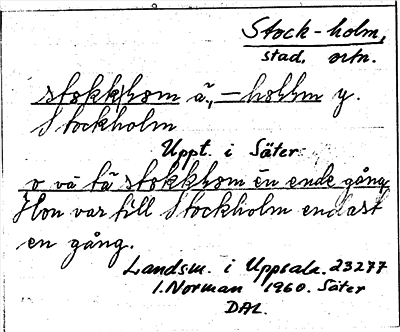 Stock-holm,
stad. ortn.
stokkhom ä., -hollm y.
Stockholm
Uppt. i Säter:
o va tä stokkhom en ende gång
Hon var till Stockholm endast
en gång.
Landsm. i Uppsala. 23277
I. Norman 1960. Säter
DAL.